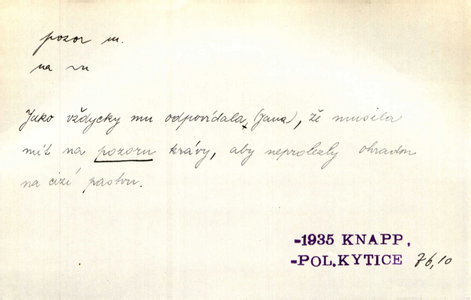 pozor m.
na ~u
Jako vždycky mu odpovídala, (Jana), že musila
mít na pozoru krávy, aby neprolezly ohradou
na cizí pastvu.
-1935 KNAPP,
-POL.KYTICE 76,10